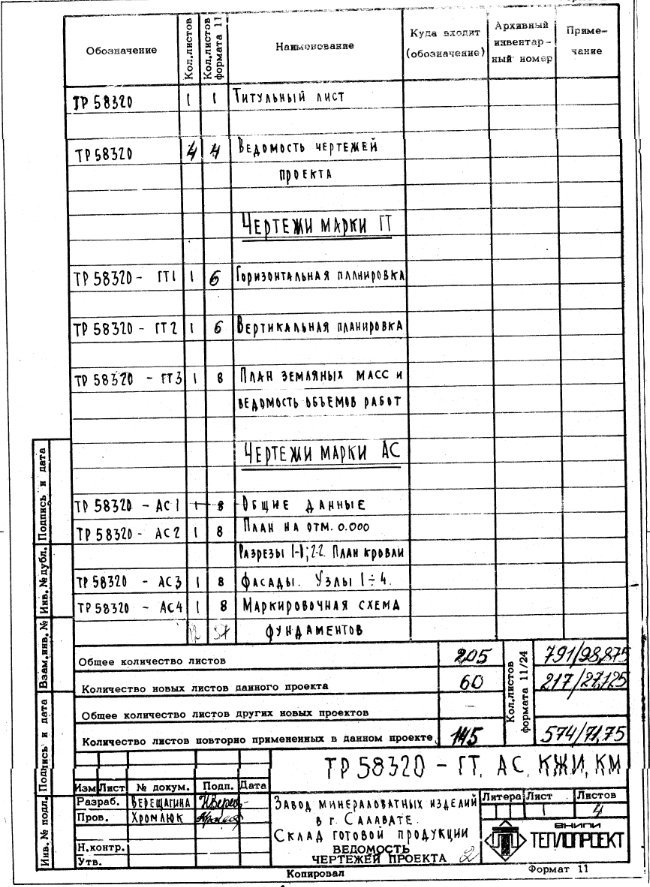 Обозначение
Кол.листов
Кол.листов формата 11
Наименование
Куда входит (обозначение)
Архивный инвентар- ный номер
Приме- чание
ТР 58320 1 1 Титульный лист
ТР 58320 4 4 Ведомость чертежей
проекта
Чертежи марки ГТ
ТР 58320 - ГТ1 1 6 Горизонтальная планировка
ТР 58320 - ГТ2 1 6 Вертикальная планировка
ТР 58320 - ГТ3 1 8 План земляных масс и
ведомость объемов работ
Чертежи марки АС
ТР 58320 - АС1 1 8 Общие данные
ТР 58320 - АС2 1 8 План на отм. 0.000
Разрезы 1-1; 2-2. План кровли
ТР 58320 - АС3 1 8 фасады. Узлы 1÷4.
ТР 58320 - АС4 1 8 Маркировочная схема
12 57 фундаментов
Общее количество листов 205
Количество новых листов данного проекта 60
Общее количество листов других новых проектов –
Количество листов повторно примененных в данном проекте 145
Кол.листов формата 11/24
791/98,875
217/27,125
574/71,75
Инв. № подл. Подпись и дата Взам.инв. № Инв. № дубл. Подпись и дата
ТР 58320 - ГТ, АС, КЖИ, КМ
Изм Лист № докум. Подп. Дата
Разраб. Верещагина
Пров. Хромлюк
Н.контр.
Утв.
Завод минераловатных изделий
в г. Салавате.
Склад готовой продукции
ВЕДОМОСТЬ
ЧЕРТЕЖЕЙ ПРОЕКТА 2
Литера Лист Листов
4
ВНИПИ
ТЕПЛОПРОЕКТ
Копировал
Формат 11